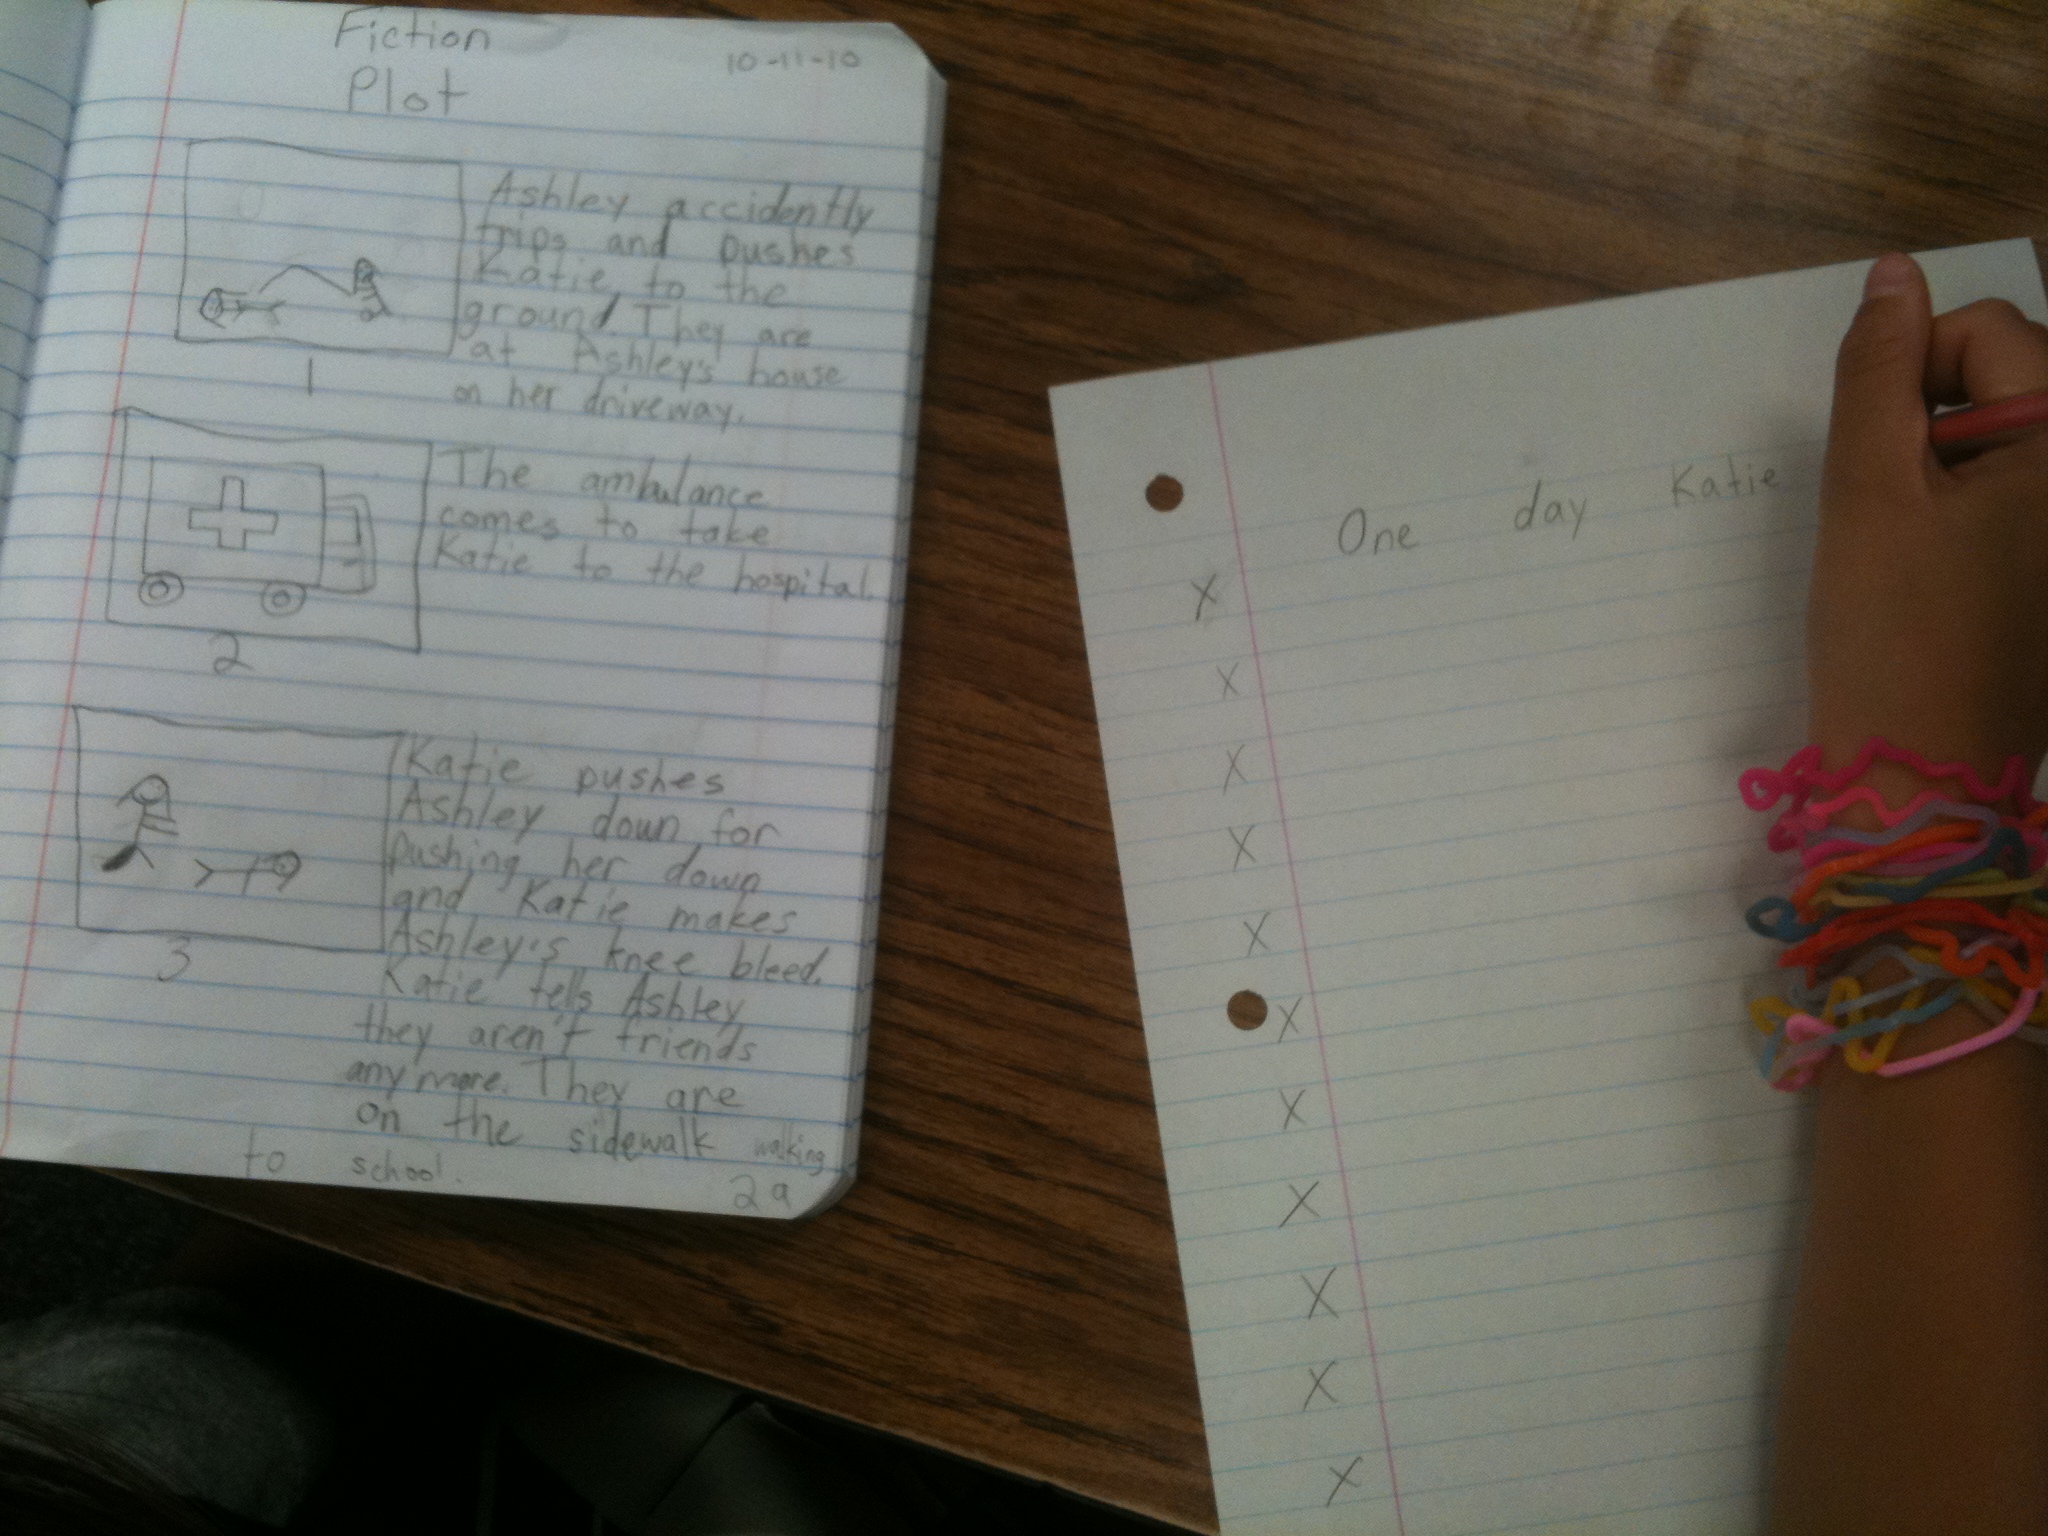 Fiction
Plot
10-11-10
Ashley accidently
trips and pushes
Katie to the
ground. They are
at Ashley's house
on her driveway.
1
The ambulance
comes to take
Katie to the hospital.
2
Katie pushes
Ashley down for
pushing her down
and Katie makes
Ashley's knee bleed.
Katie tells Ashley
they aren't friends
anymore. They are
on the sidewalk walking
to school.
3
2a
One day Katie
X
X
X
X
X
X
X
X
X
X
X